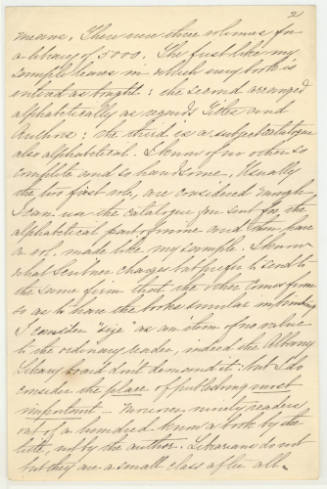 2
means. There are three volumes for
a library of 5000. The first like my
sample leaves in which every book is
entered as bought: the second arranged
alphabetically as regards Titles and
Authors: the third is a subject catalogue
also alphabetical. I know of no other so
complete and so handsome. Usually
the two first vols. are considered enough.
I can use the catalogue you sent for, the
alphabetical part of mine and then have
a vol. made like my sample. I know
what Scribner charges but prefer to send to
the same firm that the other comes from
so as to have the books similar in binding
I consider "size" as an item of no value
to the ordinary reader, indeed the Albany
Library Board don't demand it: but I do
consider the place of publishing most
important — However, ninety readers
out of a hundred know a book by the
title, not by the author. Librarians do not
but they are a small class after all.